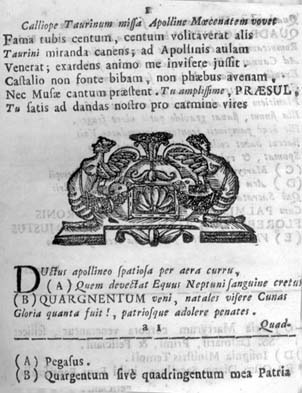 I
Calliope Taurinum missa Apolline Mœcenatem vovet
Fama tubis centum, centum volitaverat alis
Taurini miranda canens; ad Apollinis aulam
Venerat; exardens animo me invisere jussit.
Castalio non fonte bibam, non phæbus avenam,
Nec Musæ cantum præstent. Tu amplissime, PRÆSUL,
Tu satis ad dandas nostro pro carmine vires
DUctus apollineo spatiosa per aera curru,
(A) Quem devectat Equus Neptuni sanguine cretus
(B) QUARGNENTUM veni, natales visere Cunas
Gloria quanta fuit!, patriosque adolere penates.
a 1 Quad-
(A) Pegasus.
(B) Quargentum sivè quadringentum mea Patria